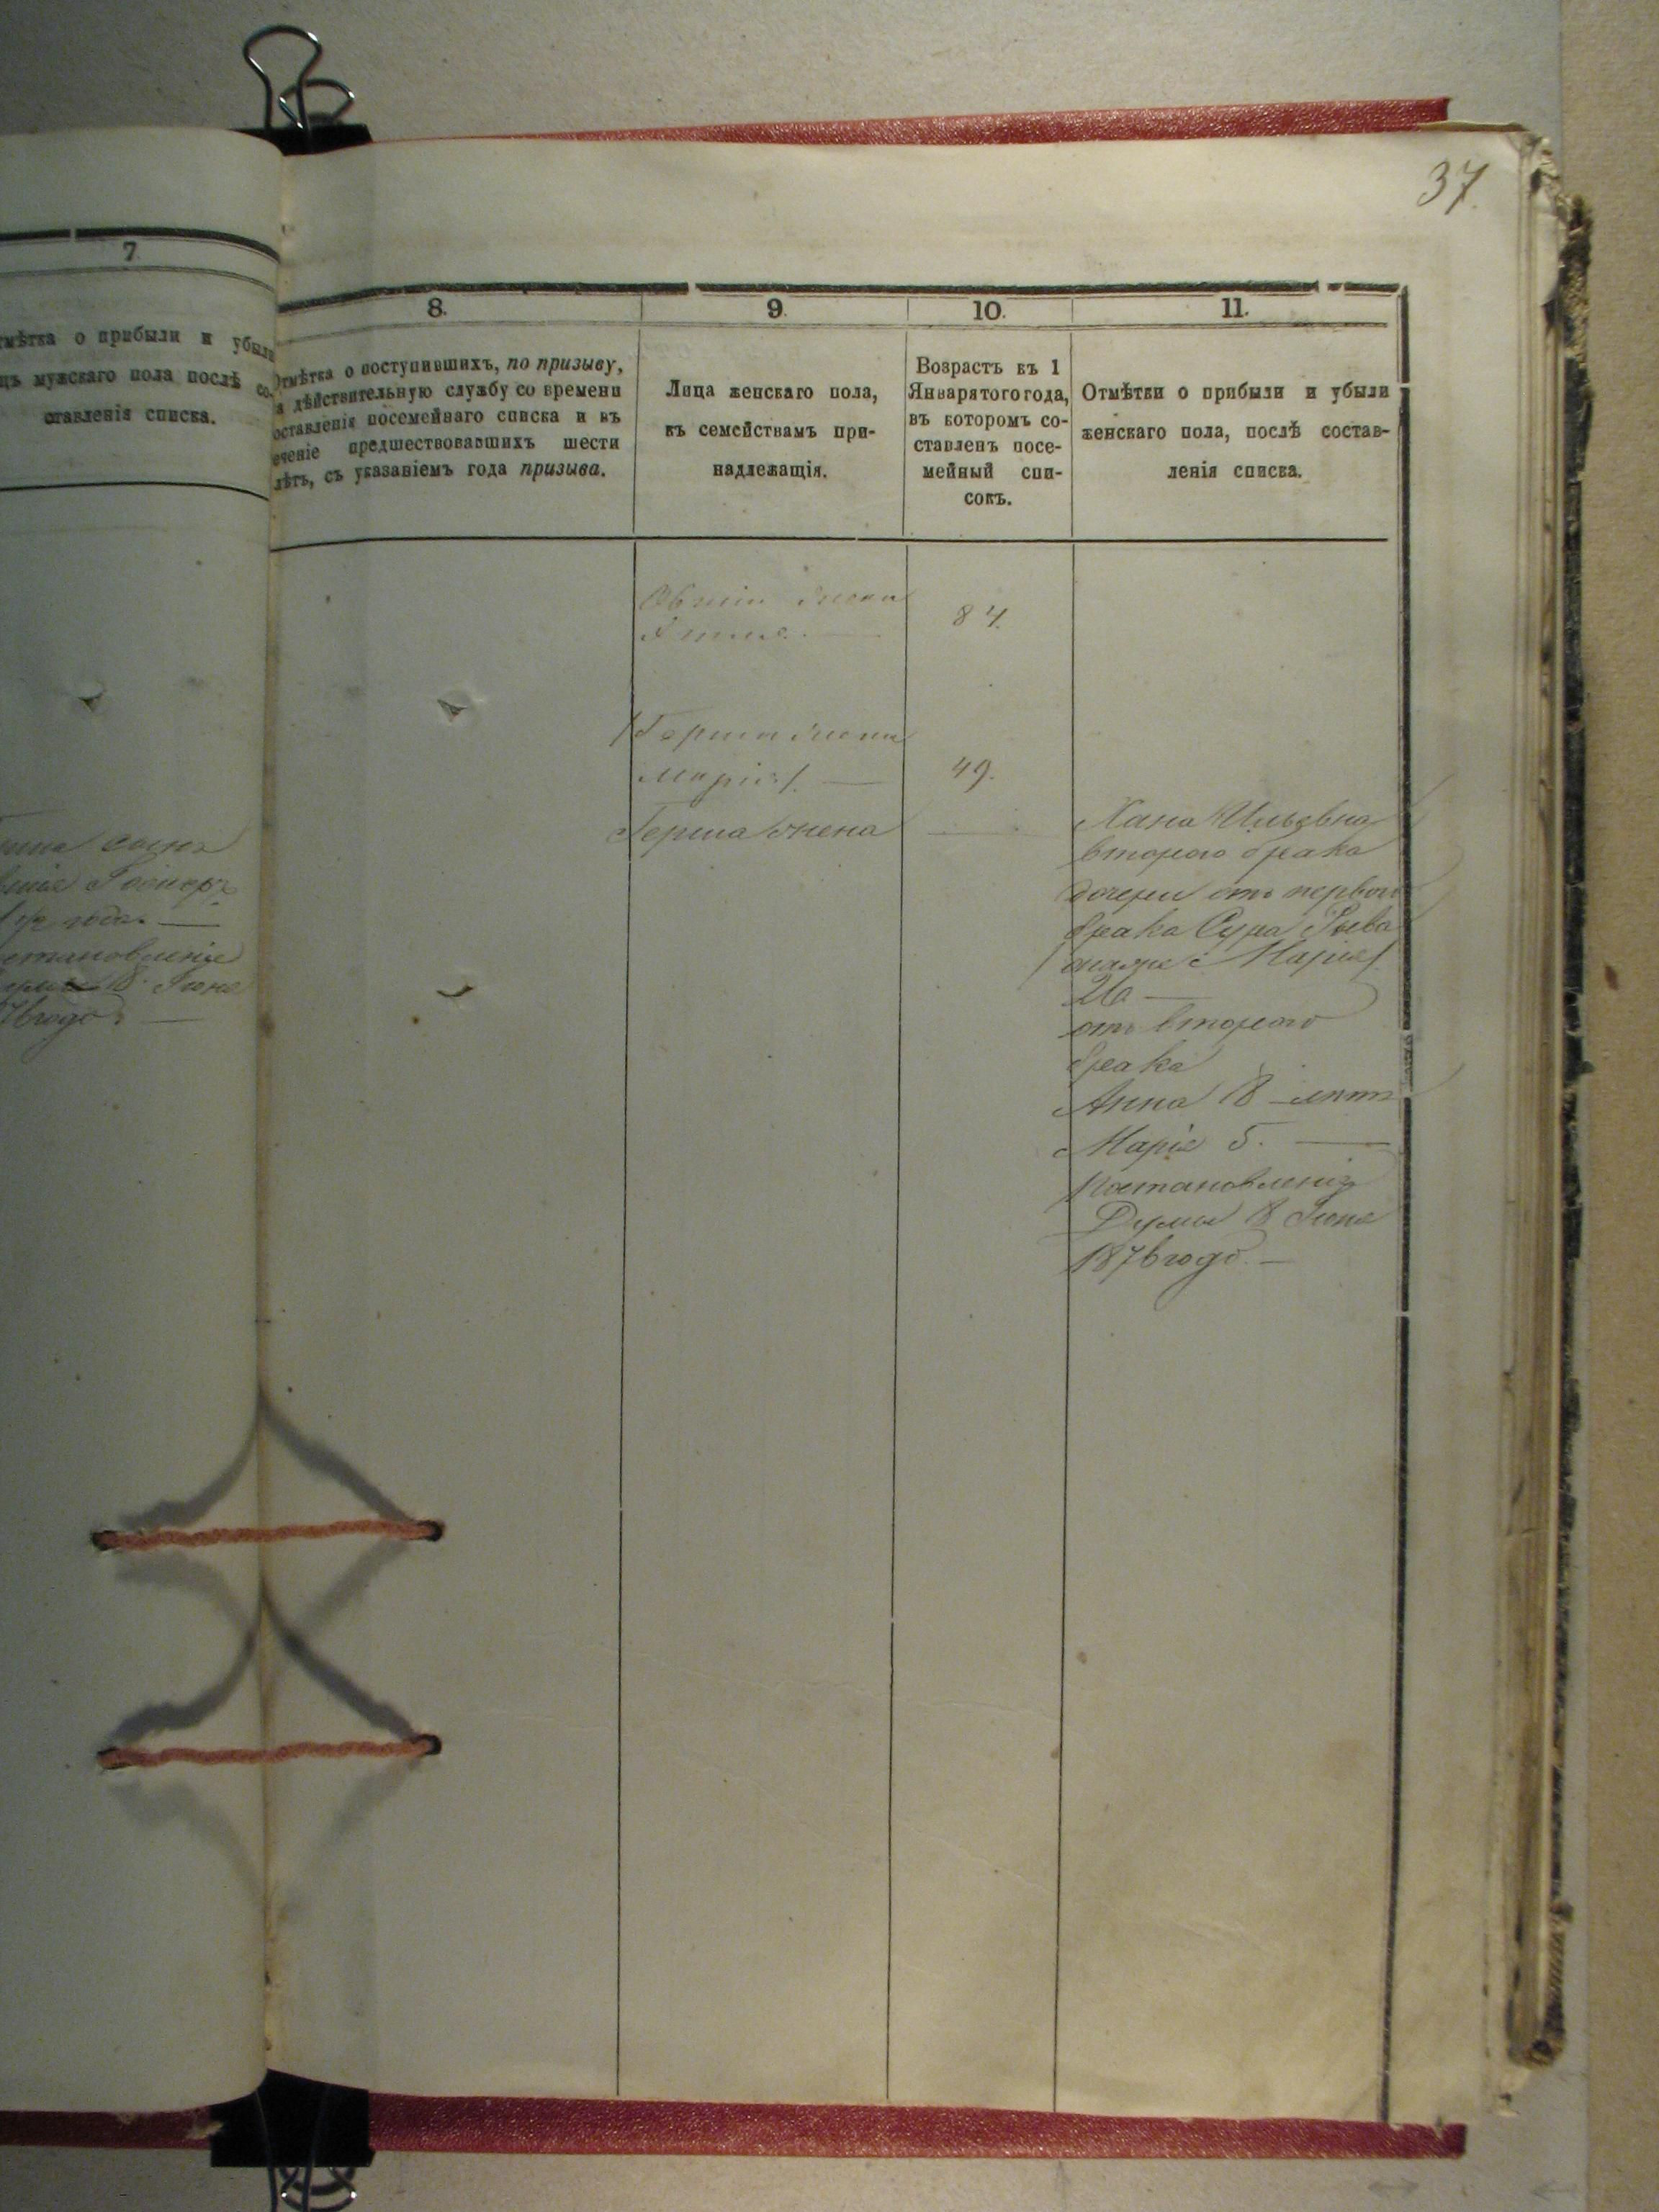 37.
7
8.
9.
10.
11.
о прибыли и убыли
мужскаго пола послѣ со-
ставленія списка.
Отмѣтка о поступившихъ, по призыву,
дѣйствительную службу со времени
составленія посемейнаго списка и въ
теченіе предшествовавшихъ шести
лѣтъ, съ указаніемъ года призыва.
Лица женскаго пола,
къ семействамъ при-
надлежащія.
Возрастъ къ 1
Января того года,
въ которомъ со-
ставленъ посе-
мейный спи-
сокъ.
Отмѣтки о прибыли и убыли
женскаго пола, послѣ состав-
ленія списка.
жена
84.
Герша жена
Марія/. —
49.
Герша жена
Хана
втораго брака
дочери отъ первого
брака Сура
Марія/
26 —
отъ втораго
брака
Анна 18 лѣтъ
Марія 5. —
Постановленіе
Думы 18 Іюня
1876 года. —
сынъ
года. —
18 Іюня